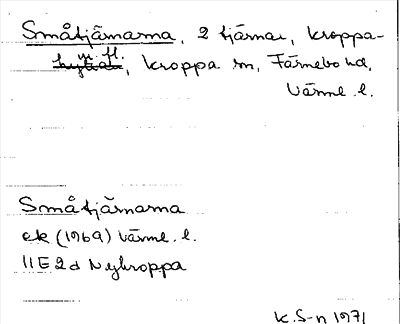 Småtjärnarna, 2 tjärnar, Kroppa-
hyttan, Kroppa sn, Färnebo hd,
Värml. l.
Småtjärnarna
ek (1969) Värml. l.
11E2d Nykroppa
K. S-n 1971